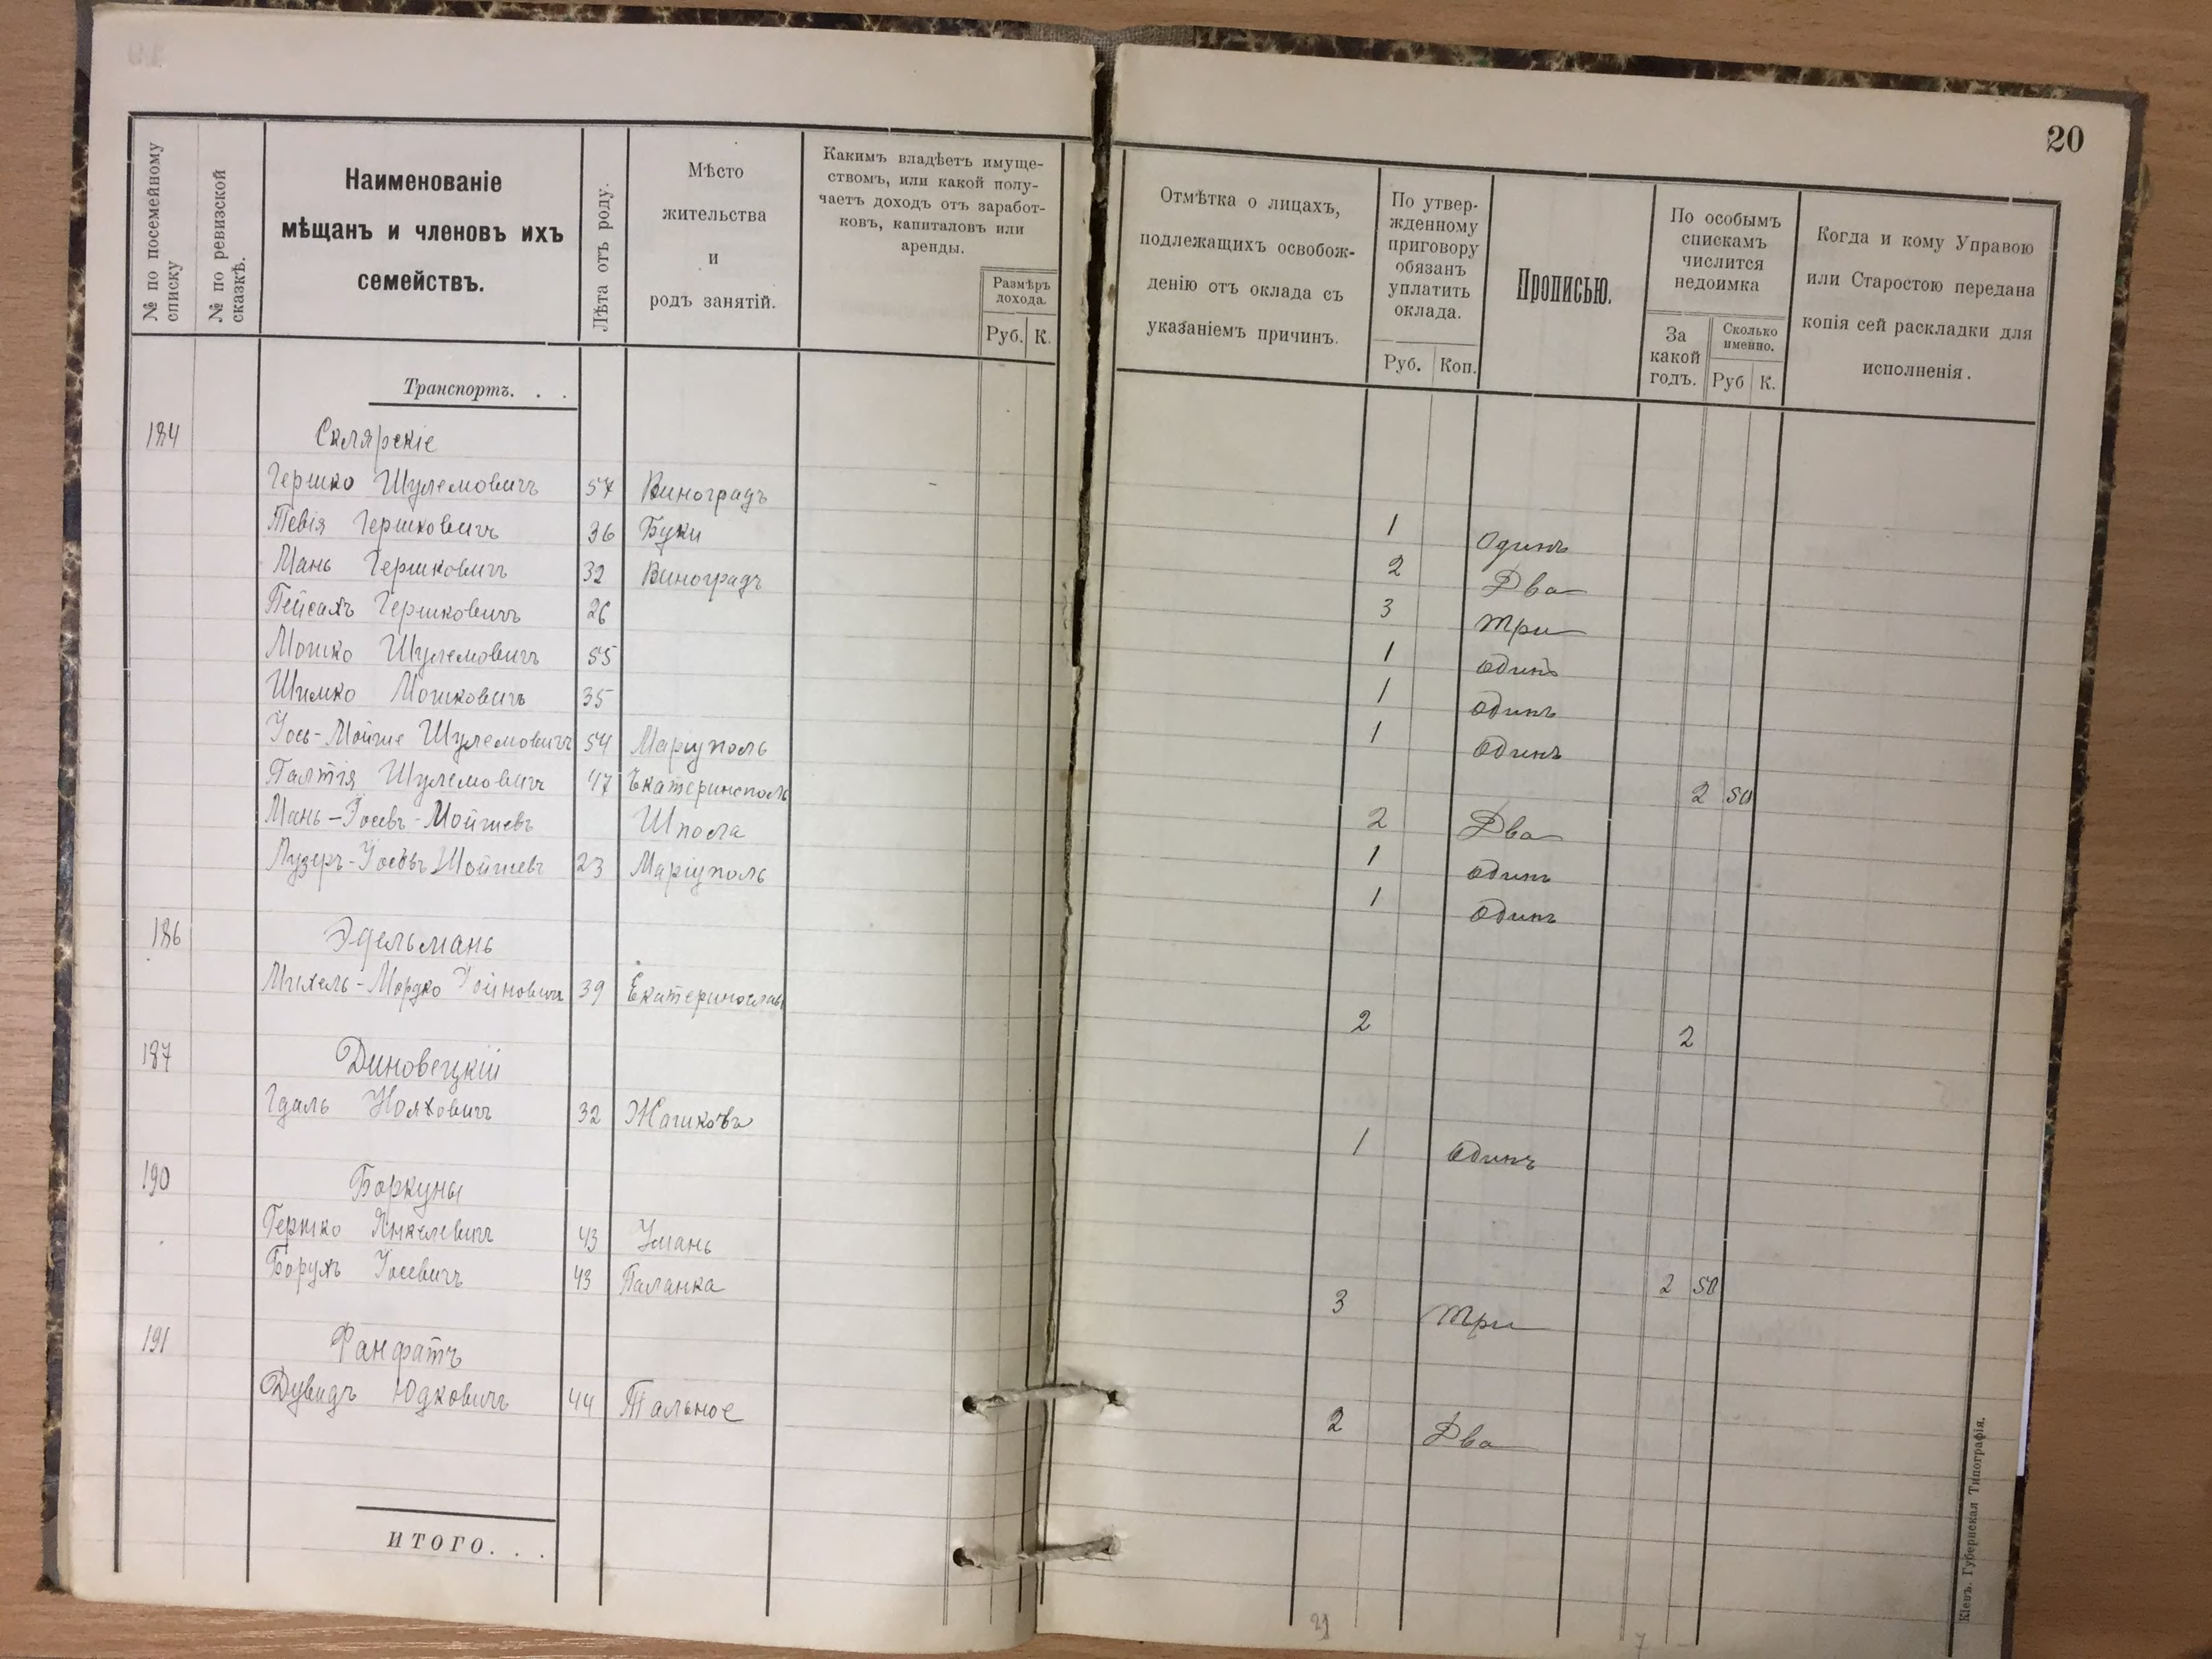 20
№ по посемейному списку
№ по ревизской сказкѣ.
Наименованіе
мѣщанъ и членовъ ихъ
семействъ.
Лѣта отъ роду.
Мѣсто
жительства
и
родъ занятій.
Какимъ владѣетъ имуще-
ствомъ, или какой полу-
чаетъ доходъ отъ заработ-
ковъ, капиталовъ или
аренды.
Размѣръ
дохода.
Руб. К.
Отмѣтка о лицахъ,
подлежащихъ освобож-
денію отъ оклада съ
указаніемъ причинъ.
По утвер-
жденному
приговору
обязанъ
уплатить
оклада.
Руб. Коп.
Прописью.
По особымъ
спискамъ
числится
недоимка
За
какой
годъ.
Сколько
именно.
Руб К.
Когда и кому Управою
или Старостою передана
копія сей раскладки для
исполненія.
Транспортъ. . .
184 Склярскіе
Гершко Шулемовичъ 57 Виноградъ 1 Одинъ
Тевія Гершковичъ 36 Буки 2 Два
Мань Гершковичъ 32 Виноградъ 3 три
Пейсахъ Гершковичъ 26 1 одинъ
Мошко Шулемовичъ 55 1 одинъ
Шимко Мошковичъ 35 1 одинъ
Іось-Мойше Шулемовичъ 54 Маріуполь 2 50
Палтія Шулемовичъ 47 Екатеринополь 2 Два
Мань-Іосевъ-Мойшевъ Шпола 1 один
Лузеръ-Іосевъ Мойшевъ 23 Маріуполь 1 один
186 Эдельманъ
Михель-Мордко 39 Екатеринославъ 2 2
187 Диновецкій
Гдаль Нояховичъ 32 Жашковъ 1 Одинъ
190 Боркуны
Гершко Янкелевичъ 43 Умань 2 50
Борухъ Іосевичъ 43 Паланка 3 три
191 Фанфатъ
Дувидъ Юдковичъ 44 Тальное 2 Два
ИТОГО. . .
21 7
Кіевъ. Губернская Типографія.